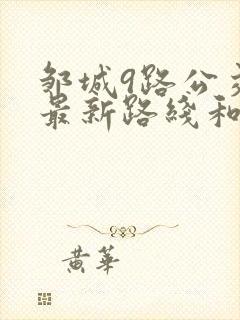 邹城9路公交
最新路线和
黄华